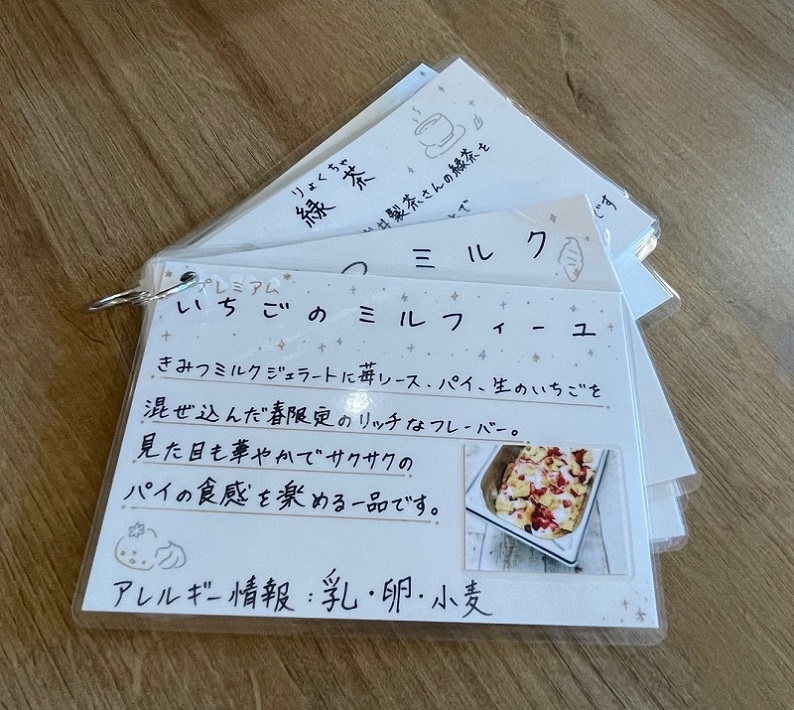 りょくちゃ
緑茶
井製茶さんの緑茶を
とで
です
ミルク
プレミアム
いちごのミルフィーユ
きみつミルクジェラートに苺ソース、パイ、生のいちごを
混ぜ込んだ春限定のリッチなフレーバー。
見た目も華やかでサクサクの
パイの食感を楽める一品です。
アレルギー情報:乳・卵・小麦